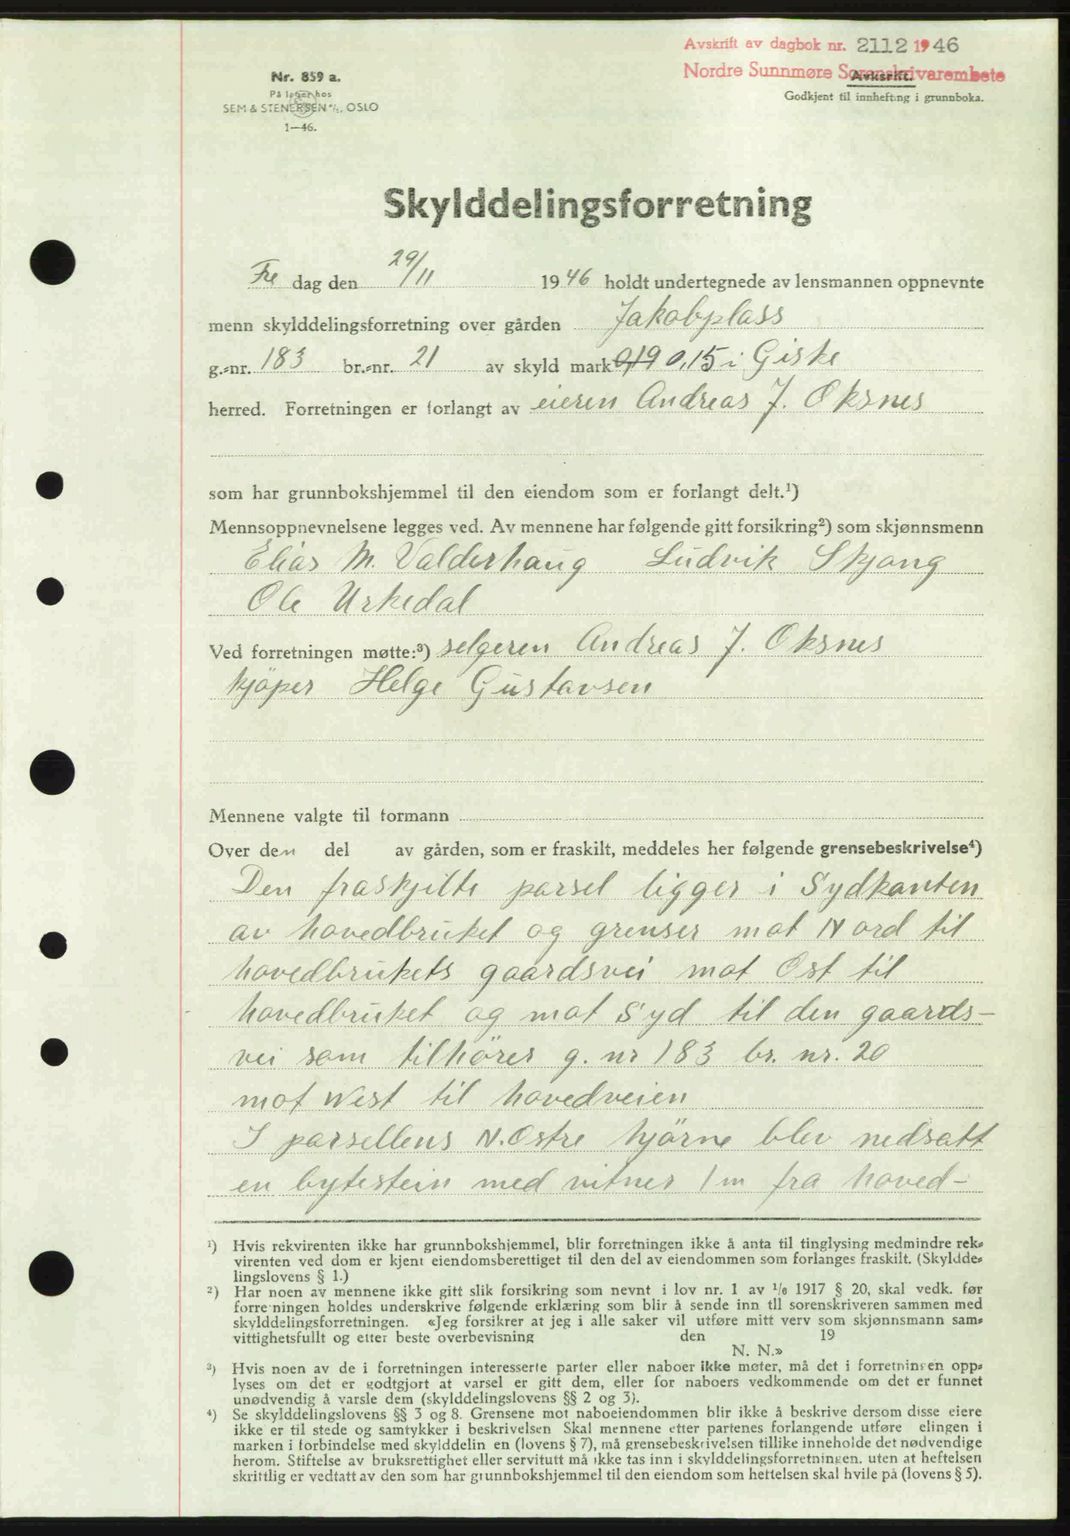 Avskrift av dagbok nr. 2112 1946
Nordre Sunnmøre Sorenskrivarembete
Avkskrift.
Godkjent til innhefting i grunnboka.
Nr. 859 a.
På lager hos
SEM & STENERSEN A/S. OSLO
1—46.
Skylddelingsforretning
Fre dag den 29/11 1946 holdt undertegnede av lensmannen oppnevnte
menn skylddelingsforretning over gården Jakobplass
g.-nr. 183 br.-nr. 21 av skyld mark 0,19 0,15 i Giske
herred. Forretningen er forlangt av eieren Andreas J. Oksnes
som har grunnbokshjemmel til den eiendom som er forlangt delt.¹)
Mennsoppnevnelsene legges ved. Av mennene har følgende gitt forsikring²) som skjønnsmenn
Elias M. Valderhaug Ludvik Skjong
Ole Urkedal
Ved forretningen møtte:³) selgeren Andreas J. Oksnes
kjöper Helge Gustavsen
Mennene valgte til formann
Over den del av gården, som er fraskilt, meddeles her følgende grensebeskrivelse⁴)
Den fraskjelte parsel ligger i Sydkanten
av hovedbruket og grenser mot Nord til
hovedbrukets gaardsvei mot Ost til
hovedbruket og mot Syd til den gaards-
vei som tilhörer g. nr 183 br. nr. 20
mot West til hovedveien
I parsellens N. Ostre hjörne blev nedsatt
en bytestein med vitner 1 m fra hoved-
¹) Hvis rekvirenten ikke har grunnbokshjemmel, blir forretningen ikke å anta til tinglysing medmindre rek-
virenten ved dom er kjent eiendomsberettiget til den del av eiendommen som forlanges fraskilt. (Skyldde-
lingslovens § 1.)
²) Har noen av mennene ikke gitt slik forsikring som nevnt i lov nr. 1 av 1/6 1917 § 20, skal vedk. før
forretningen holdes underskrive følgende erklæring som blir å sende inn til sorenskriveren sammen med
skylddelingsforretningen. «Jeg forsikrer at jeg i alle saker vil utføre mitt verv som skjønnsmann sam-
vittighetsfullt og etter beste overbevisning den 19
N. N.»
³) Hvis noen av de i forretningen interesserte parter eller naboer ikke møter, må det i forretningen opp-
lyses om det er godtgjort at varsel er gitt dem, eller for naboers vedkommende om det er funnet
unødvendig å varsle dem (skylddelingslovens §§ 2 og 3).
⁴) Se skylddelingslovens §§ 3 og 8. Grensene mot naboeiendommen blir ikke å beskrive dersom disse eiere
ikke er til stede og samtykker i beskrivelsen Skal mennene etter partenes forlangende utføre elingen i
marken i forbindelse med skylddelin en (lovens § 7), må grensebeskrivelsen tillike inneholde det nødvendige
herom. Stiftelse av bruksrettighet eller servitutt må ikke tas inn i skylddelingsforretningen. uten at heftelsen
skriftlig er vedtatt av den som har grunnbokshjemmel til den eiendom som heftelsen skal hvile på (lovens § 5).